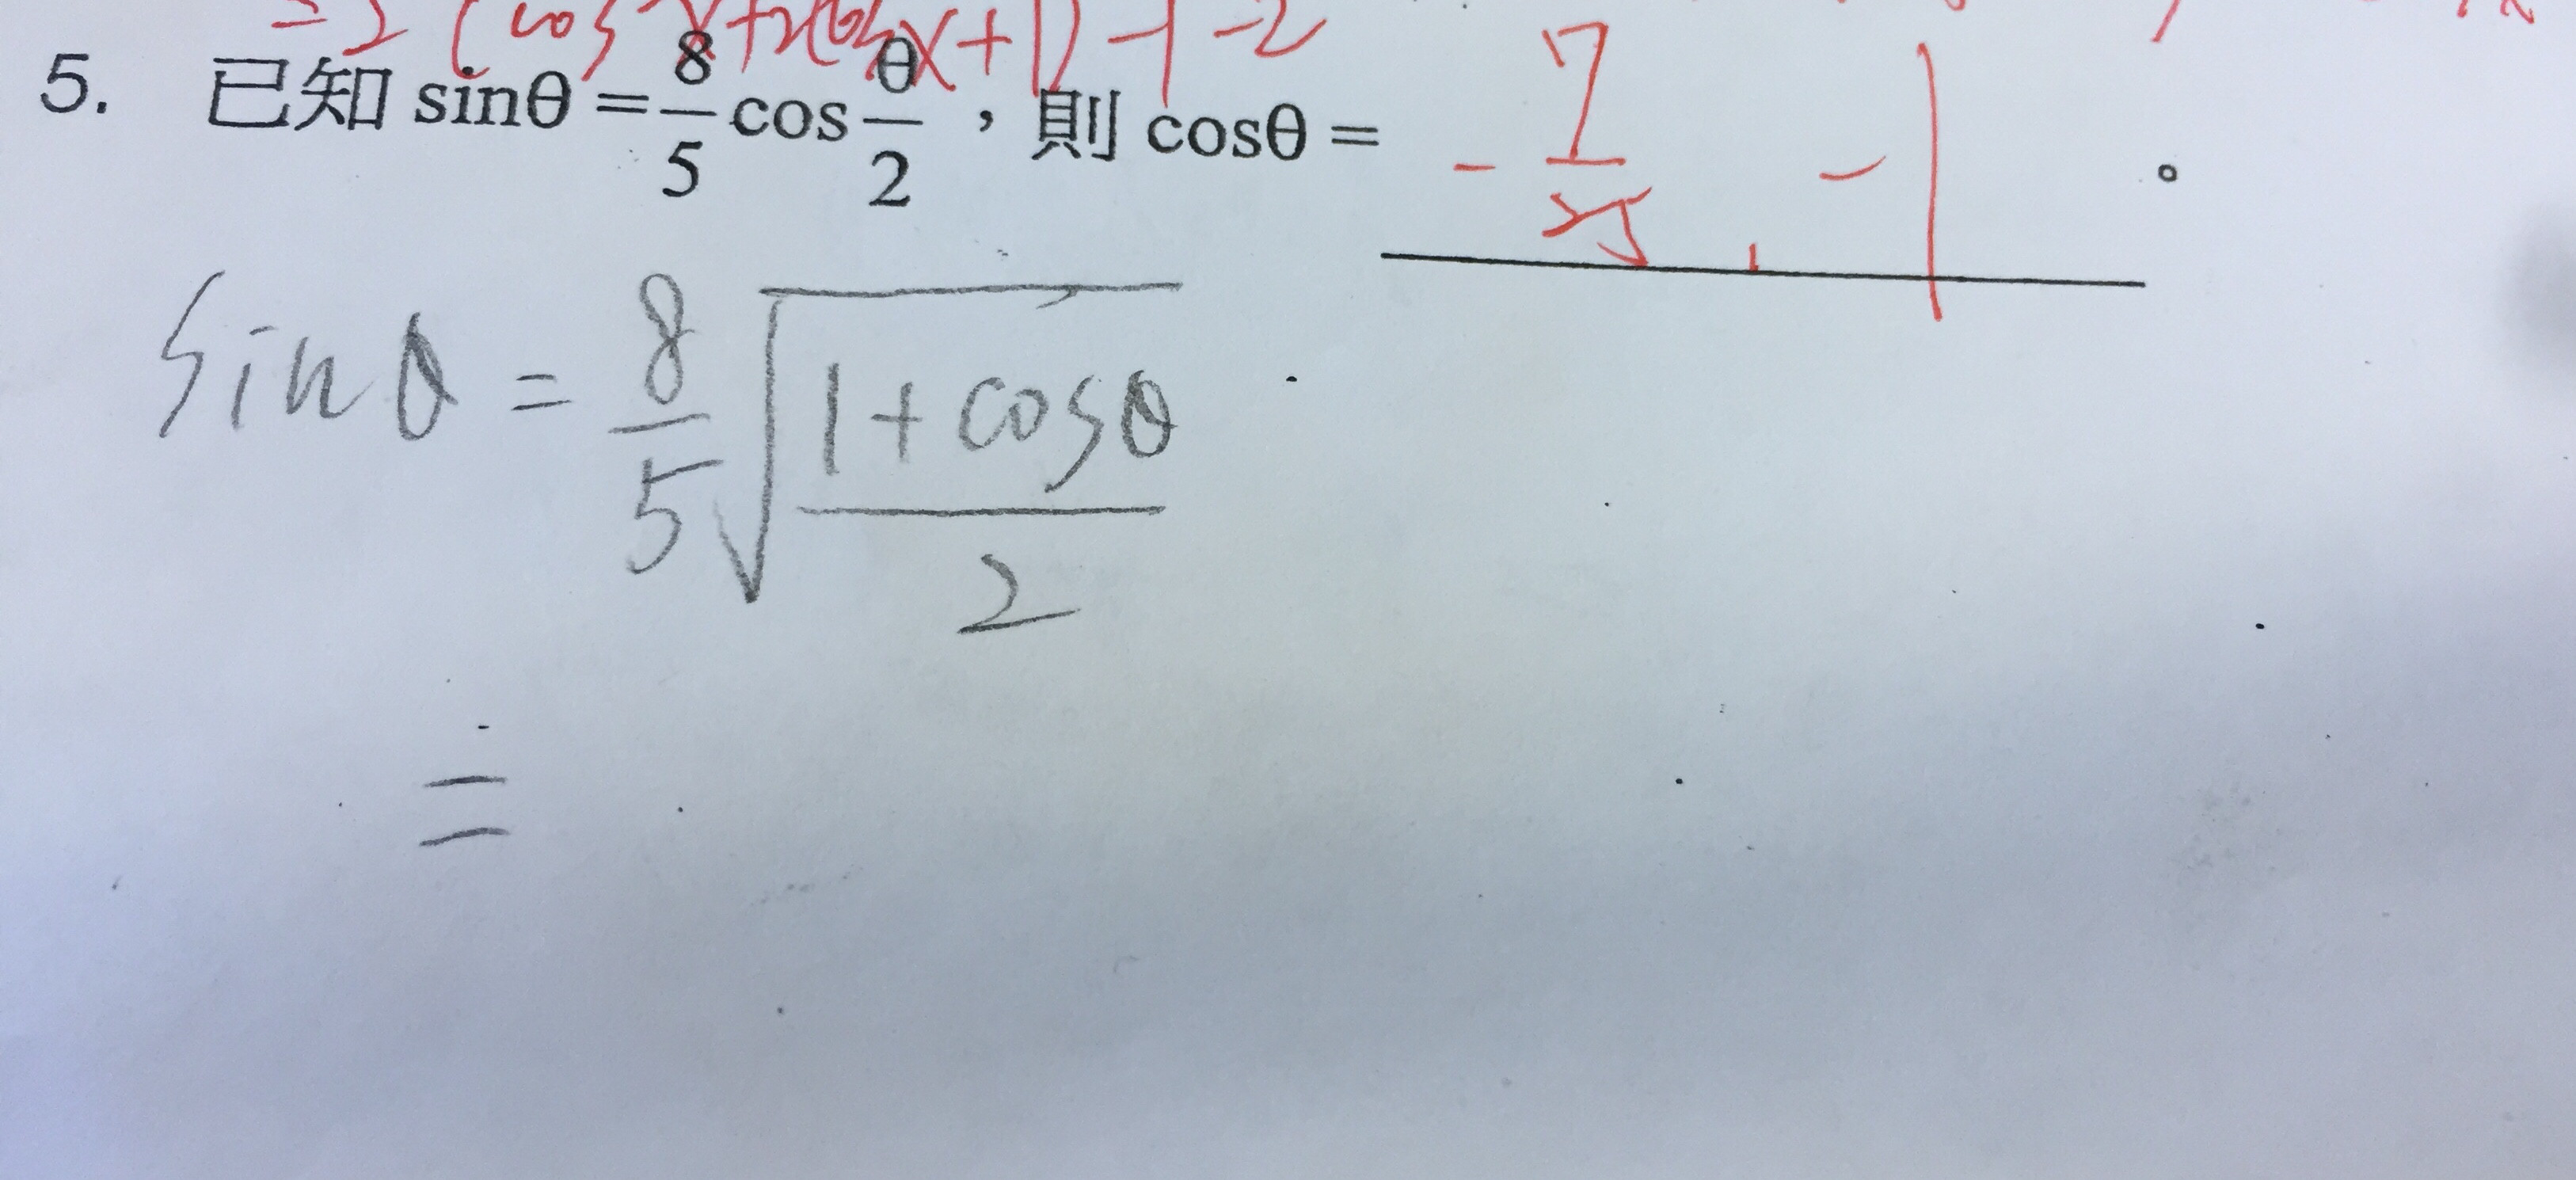 = 2 (cos²x+2cosx+1) -1 -2
5. 已知 sinθ = 8/5 cos θ/2 , 則 cosθ = - 7/25 , -1 。
sinθ = 8/5 √((1+cosθ)/2)
=